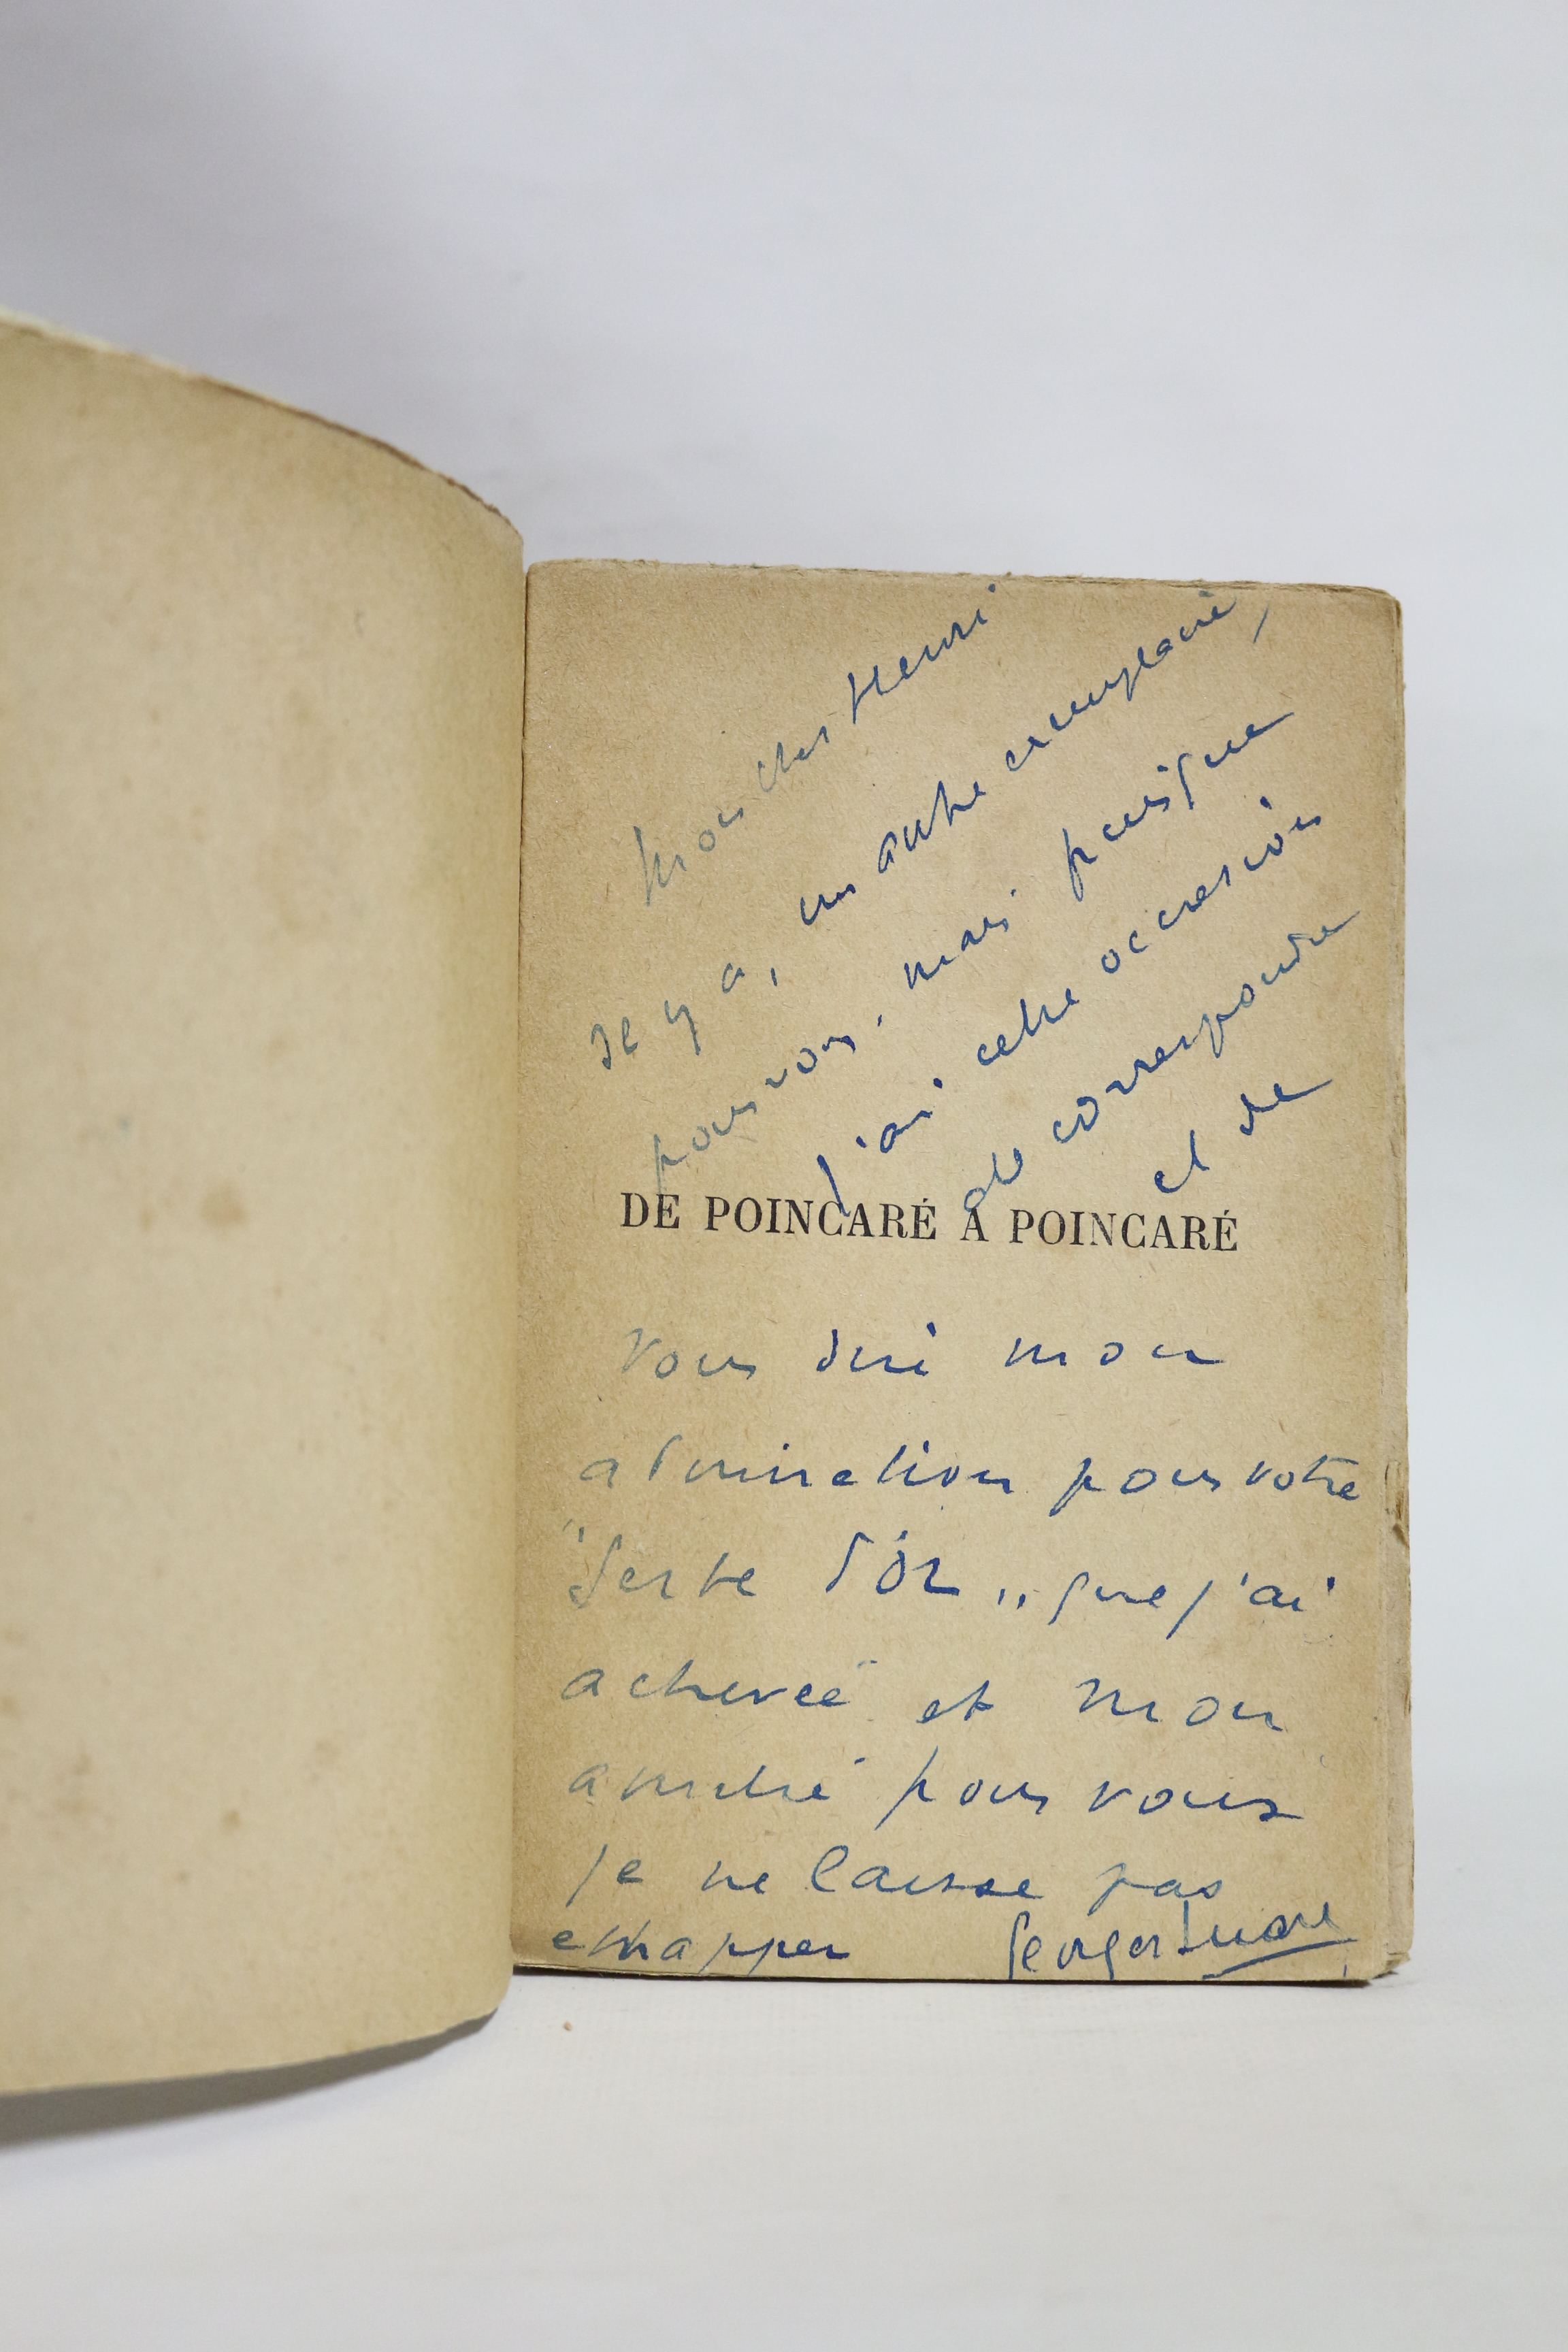 Mon cher Henri
Il y a, un autre exemplaire,
pour vous, mais puisque
j'ai cette occasion
de correspondre
et de
DE POINCARÉ A POINCARÉ
vous dire mon
admiration pour votre
"Gerbe d'Or" que j'ai
achevée et mon
amitié pour vous
je ne laisse pas
echapper Georges Suarez